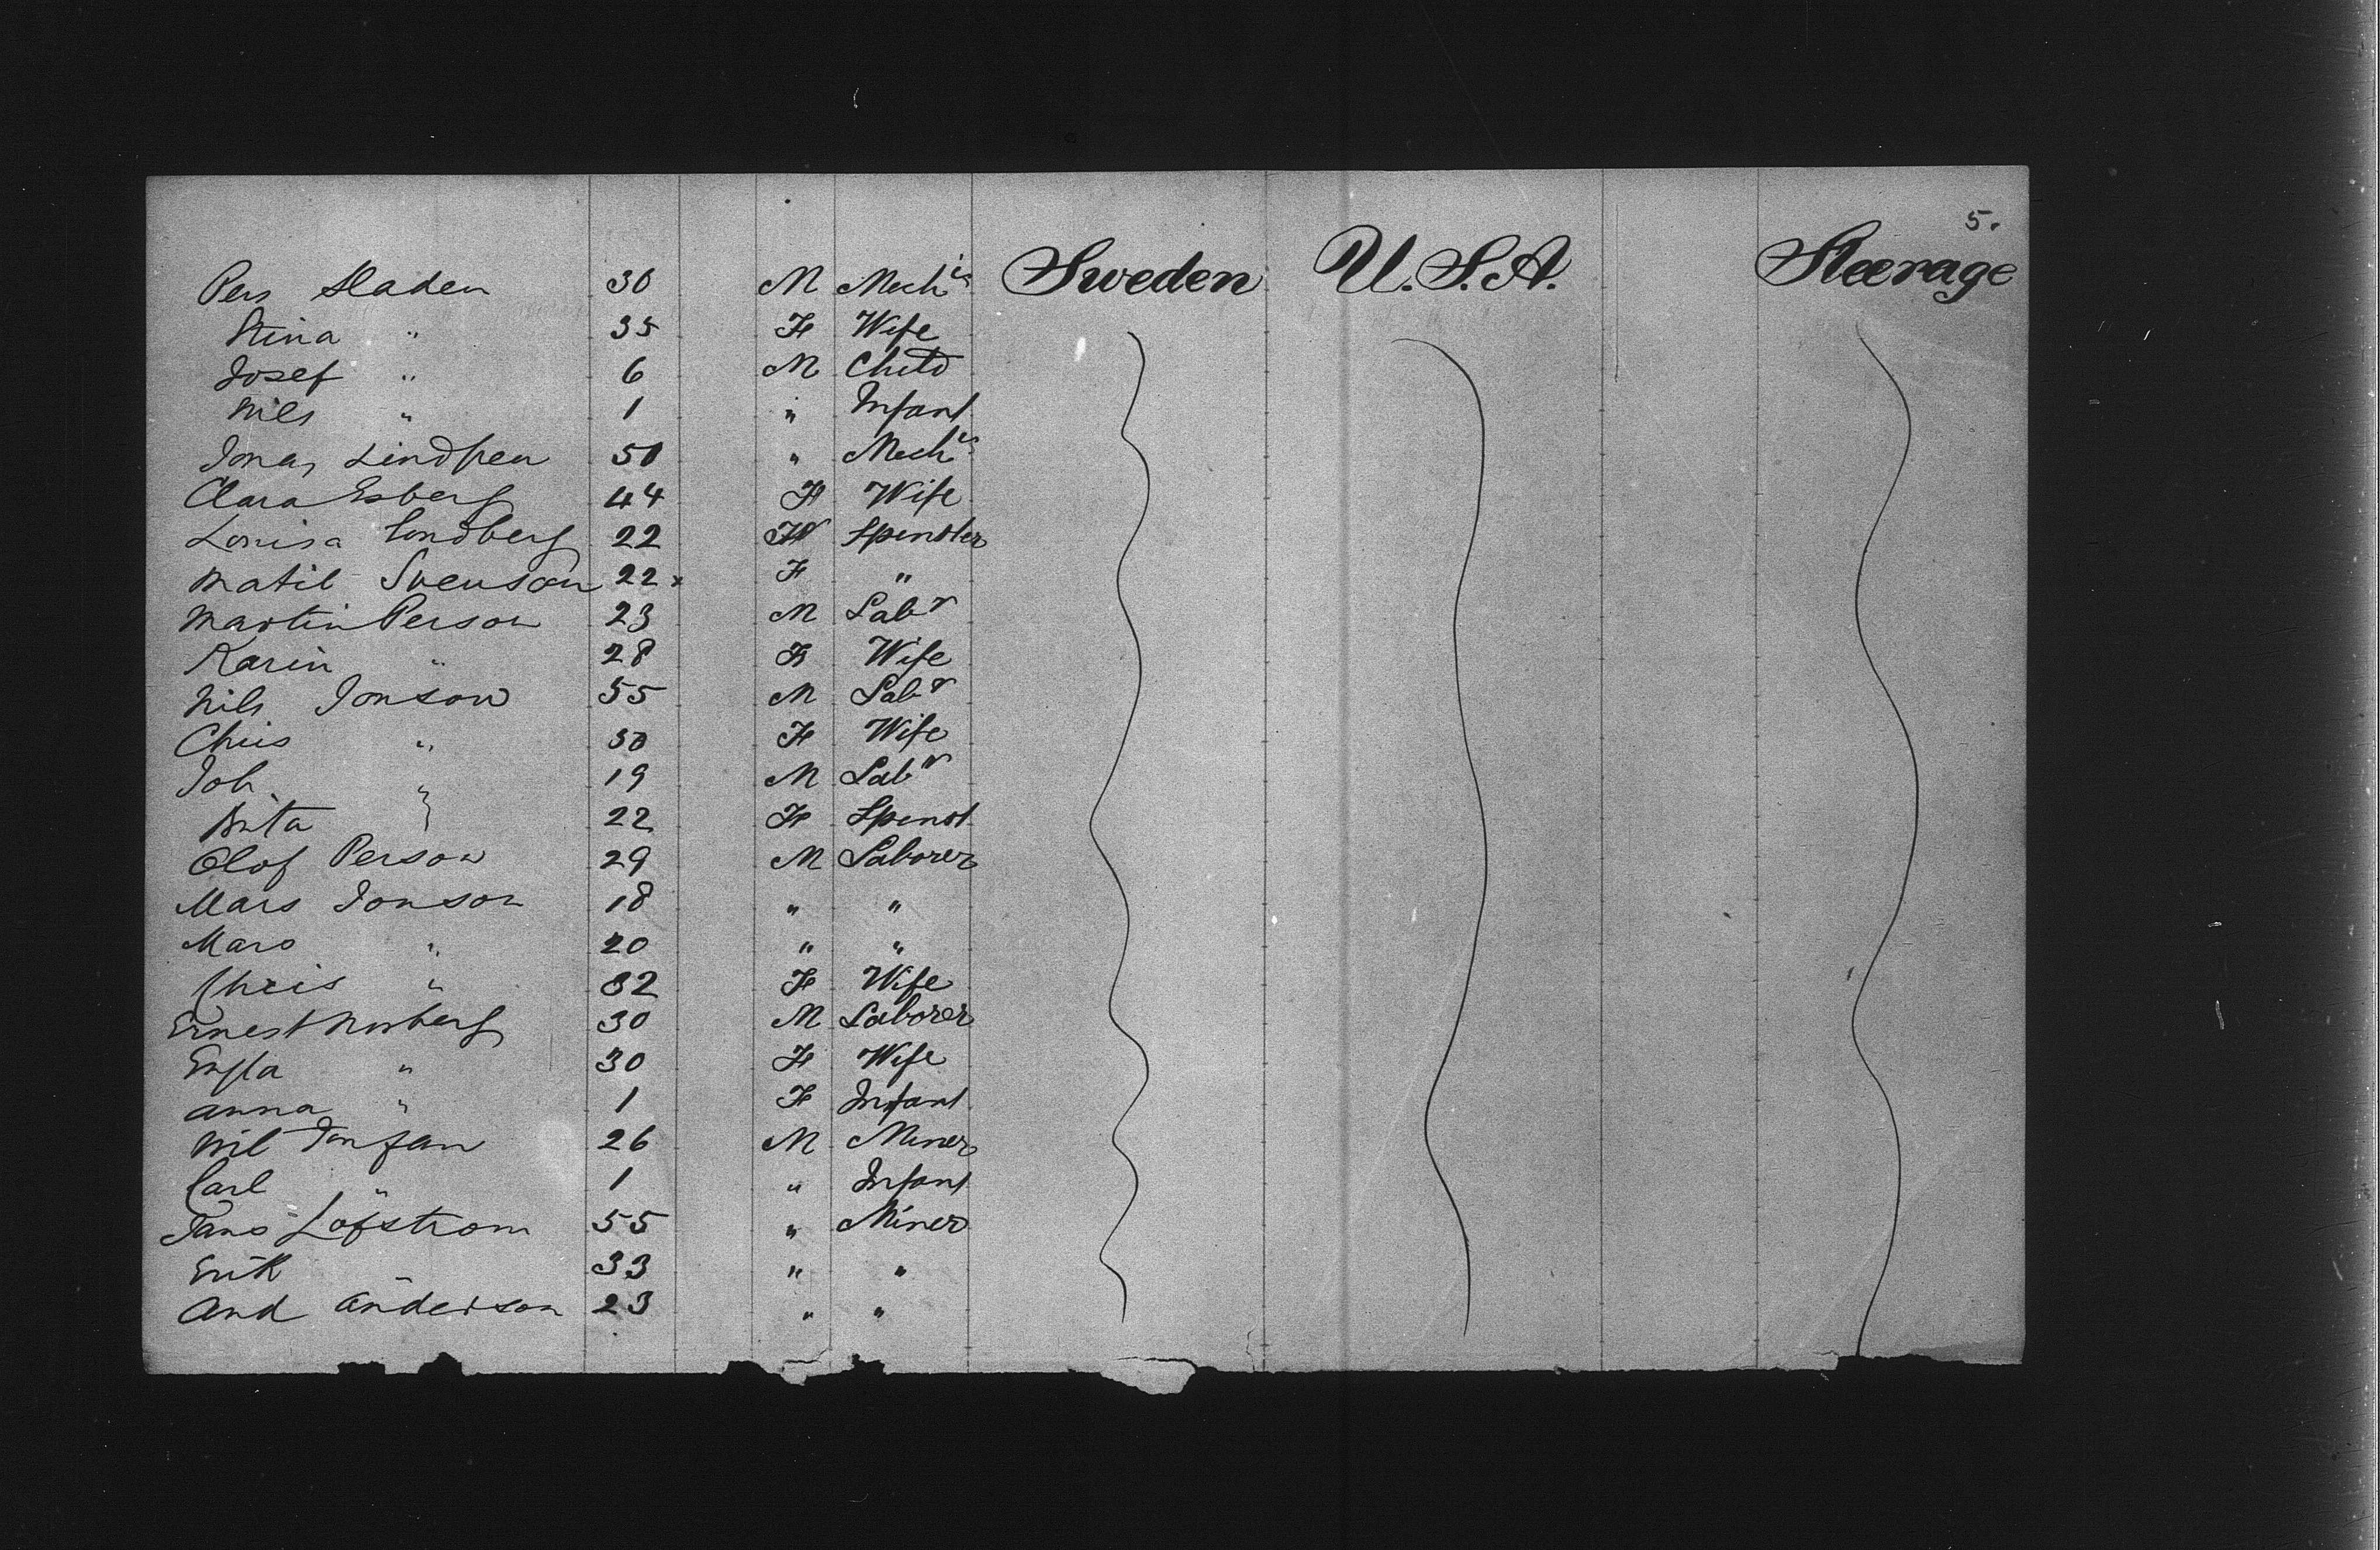 5.
Pers Staden 30 M Mech's Sweden U.S.A. Steerage
Stina " 35 F Wife
Josef " 6 M Child
Nils " 1 " Infant
Jonas Lindgren 50 " Mech's
Clara Esberg 44 F Wife
Louisa Lundberg 22 F Spinster
Matil Svenson 22 F "
Martin Person 23 M Labr
Karin " 28 F Wife
Nils Jonson 55 M Labr
Chris " 50 F Wife
Joh. " 19 M Labr
Brita " 22 F Spinst
Olof Person 29 M Laborer
Mars Jonson 18 " "
Mars " 20 " "
Chris " 32 F Wife
Ernest Norberg 30 M Laborer
Engla " 30 F Wife
Anna " 1 F Infant
Nil 26 M Miner
Carl " 1 " Infant
Lofstrom 55 " Miner
Erik " 33 " "
And Anderson 23 " "